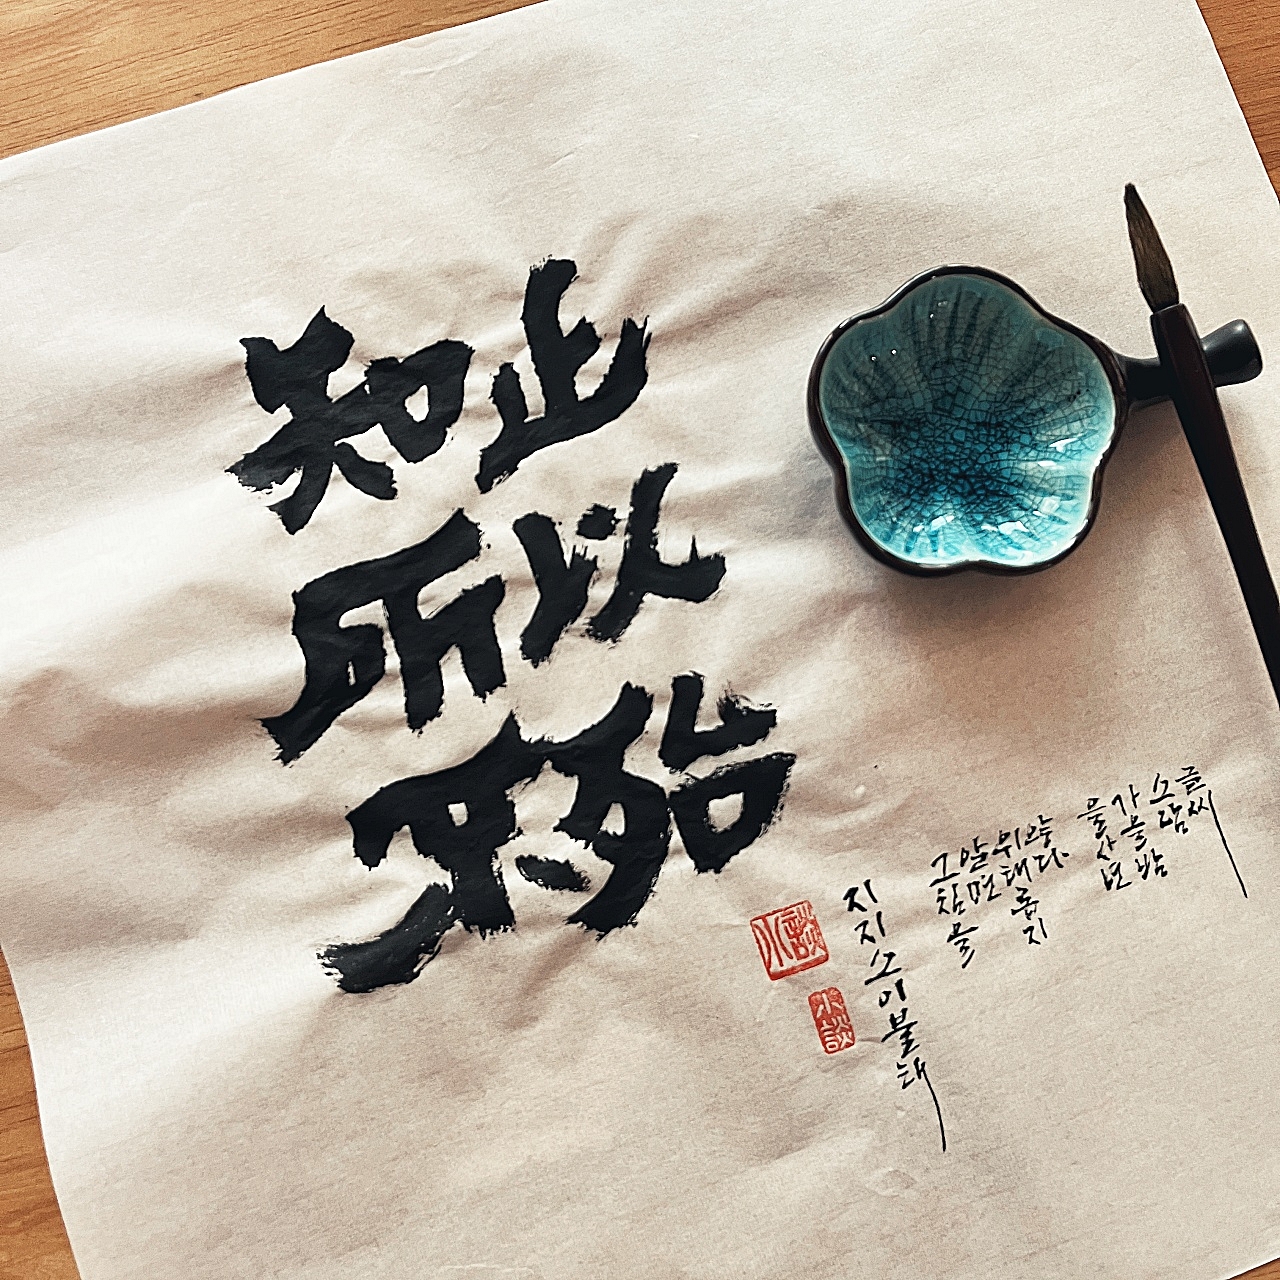 知止
所以
不殆
지지소이불태
그침을
알면
위태롭지
않다
을사년
가을밤
소담
글씨
小談
小談